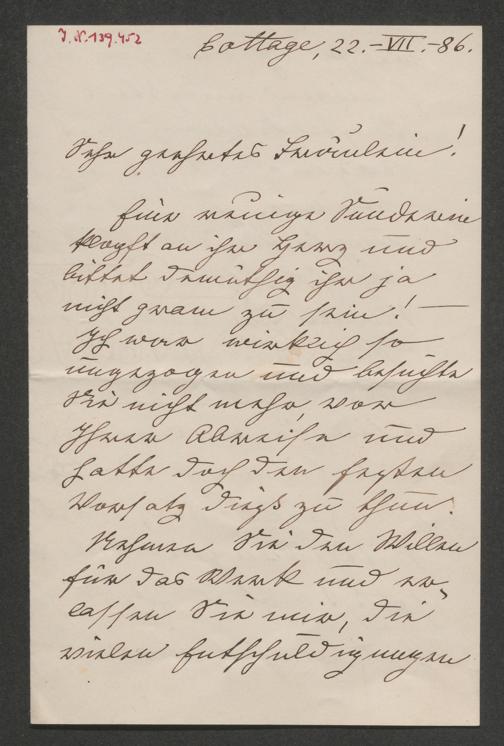 J.N. 139.452
Cottage, 22.-VII.-86.
Sehr geehrtes Fräulein!
Eine reuige Sünderin
klopft an ihr Herz und
bittet demüthig ihr ja
nicht gram zu sein! —
Ich war wirklich so
ungezogen und besuchte
Sie nicht mehr, vor
Ihrer Abreise und
hatte doch den festen
Vorsatz dieß zu thun.
Nehmen Sie den Willen
für das Werk und er-
lassen Sie mir, die
vielen Entschuldigungen